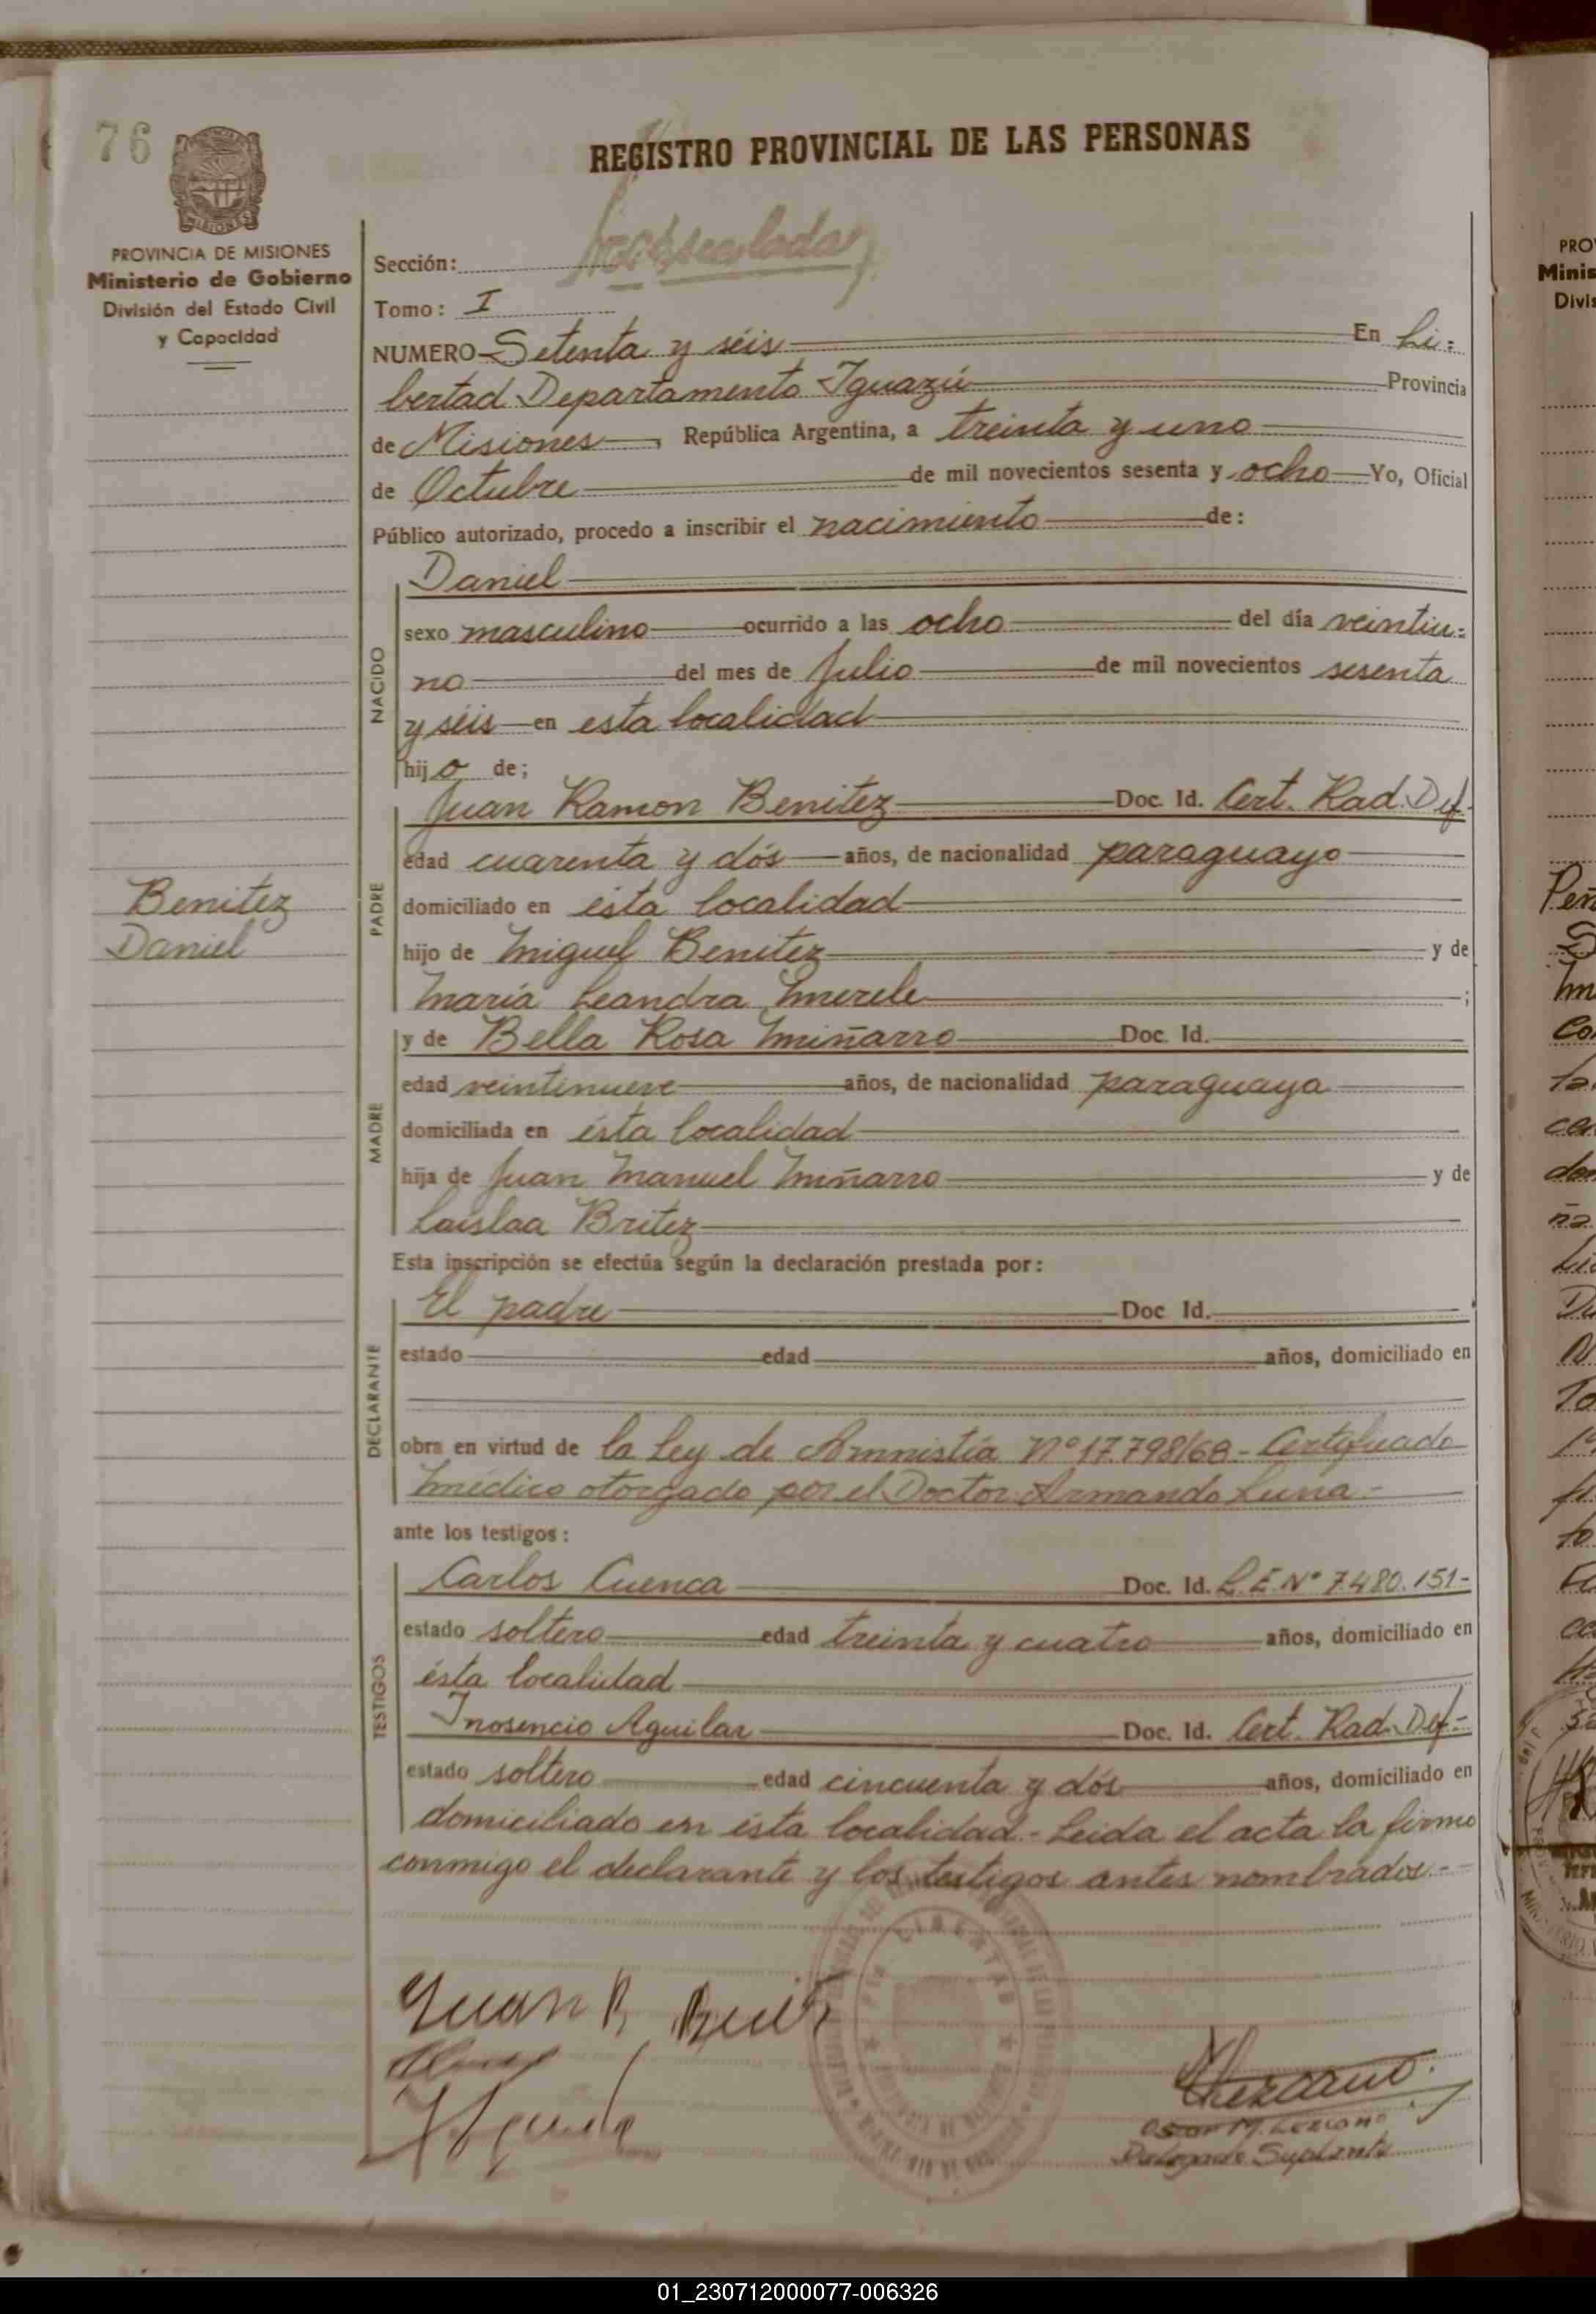 76
REGISTRO PROVINCIAL DE LAS PERSONAS
PROVINCIA DE MISIONES
Ministerio de Gobierno
División del Estado Civil
y Capacidad
Sección:
Tomo: I
NUMERO Setenta y séis En Li=
bertad Departamento Iguazú Provincia
de Misiones, República Argentina, a treinta y uno
de Octubre de mil novecientos sesenta y ocho Yo, Oficial
Público autorizado, procedo a inscribir el nacimiento de:
NACIDO
Daniel
sexo masculino ocurrido a las ocho del día veintiu=
no del mes de Julio de mil novecientos sesenta
y séis en esta localidad
hijo de;
PADRE
Juan Ramon Benitez Doc. Id. Cert. Rad. Def.
edad cuarenta y dós años, de nacionalidad paraguayo
domiciliado en ésta localidad
Benitez
Daniel
hijo de Miguel Benitez y de
María Leandra Merele ;
MADRE
y de Bella Rosa Miñarro Doc. Id.
edad veintinueve años, de nacionalidad paraguaya
domiciliada en ésta localidad
hija de Juan Manuel Miñarro y de
Laislaa Britez
Esta inscripción se efectúa según la declaración prestada por:
DECLARANTE
El padre Doc. Id.
estado edad años, domiciliado en
obra en virtud de la Ley de Amnistía Nº 17.798/68 - Certificado
Médico otorgado por el Doctor Armando Luna.-
ante los testigos:
TESTIGOS
Carlos Cuenca Doc. Id. L.E. Nº 7.480.151-
estado soltero edad treinta y cuatro años, domiciliado en
ésta localidad
Inosencio Aguilar Doc. Id. Cert. Rad. Def.-
estado soltero edad cincuenta y dós años, domiciliado en
domiciliado en ésta localidad.- Leida el acta la firma
conmigo el declarante y los testigos antes nombrados.--
Juan R. Benit
LIBERTAD
Oscar M. Lezcano
Delegado Suplente
PRO
Minis
Divis
01_230712000077-006326